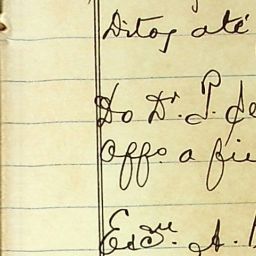 Ditos até
Do Dr. P. de
Offo a fi
Exm. A.